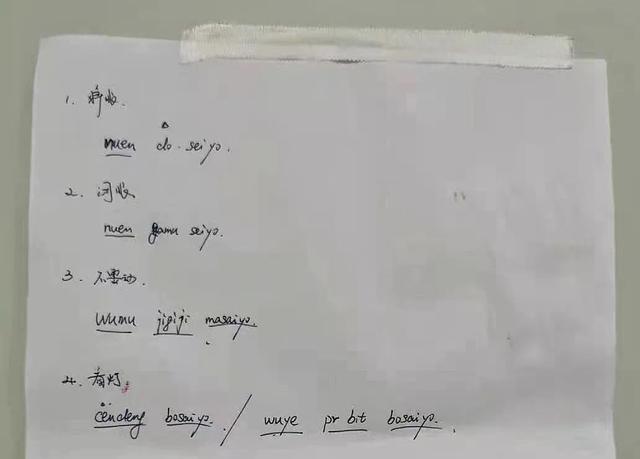 1. 睁眼.
nuen do seiyo.
2. 闭眼
nuen gamu seiyo.
3. 不要动.
wumu jigiji masaiyo.
4. 看灯.
cendeng bosaiyo. / wuye pr bit bosaiyo.